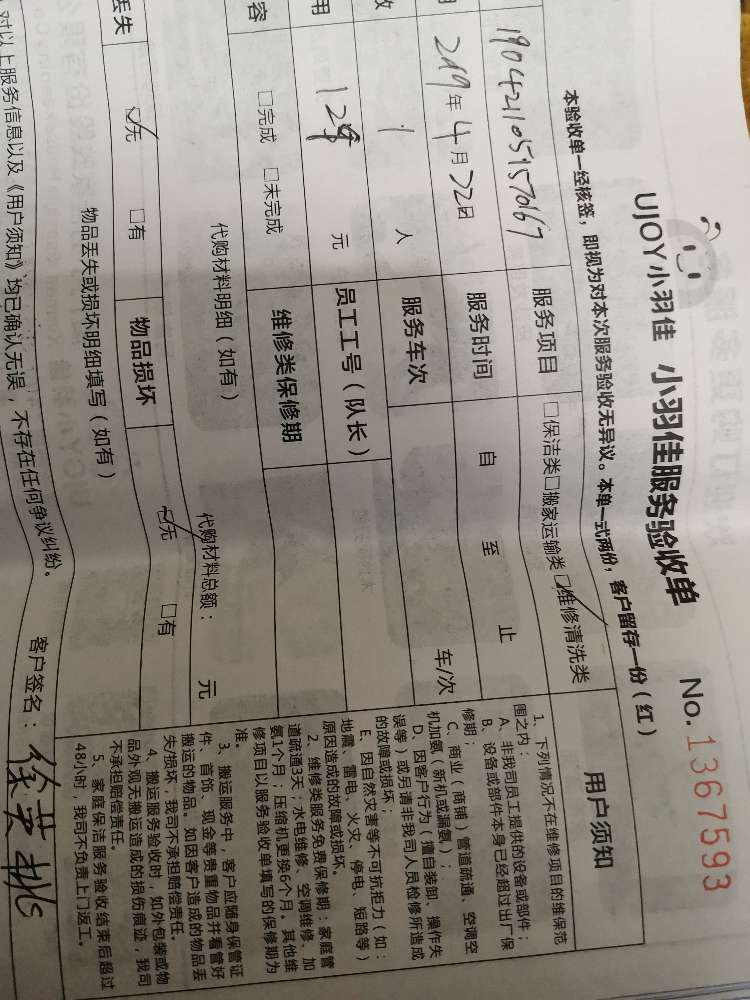 UJOY小羽佳 小羽佳服务验收单 No.1367593
本验收单一经核签，即视为对本次服务验收无异议。本单一式两份，客户留存一份（红）
服务项目 □保洁类□搬家运输类☑维修清洗类
2019年4月22日 服务时间 自 至 止
1 人 服务车次 车/次
元 员工工号（队长）
容 □完成 □未完成 维修类保修期
代购材料明细（如有） 代购材料总额： 元
丢失 ☑无 □有 物品损坏 ☑无 □有
物品丢失或损坏明细填写（如有）
对以上服务信息以及《用户须知》均已确认无误，不存在任何争议纠纷。
客户签名：
用户须知
1、下列情况不在维修项目的维保范
围之内：
A、非我司员工提供的设备或部件；
B、设备或部件本身已经超过出厂保
修期；
C、商业（商铺）管道疏通、空调空
机加氨（新机或漏氨）；
D、因客户行为（擅自装卸、操作失
误等）或另请非我司人员检修所造成
的故障或损坏；
E、因自然灾害等不可抗拒力（如：
地震、雷电、火灾、停电、短路等）
原因造成的故障或损坏。
2、维修类服务免费保修期：家庭管
道疏通3天；水电维修、空调维修、加
氨1个月；压缩机更换6个月。其他维
修项目以服务验收单填写的保修期为
准。
3、搬运服务中，客户应随身保管证
件、首饰、现金等贵重物品并看管好
搬运的物品。如因客户造成的物品丢
失/损坏，我司不承担赔偿责任。
4、搬运服务验收时，如外包装或物
品外观无搬运造成的损伤痕迹，我司
不承担赔偿责任。
5、家庭保洁服务验收结束后超过
48小时，我司不负责上门返工。